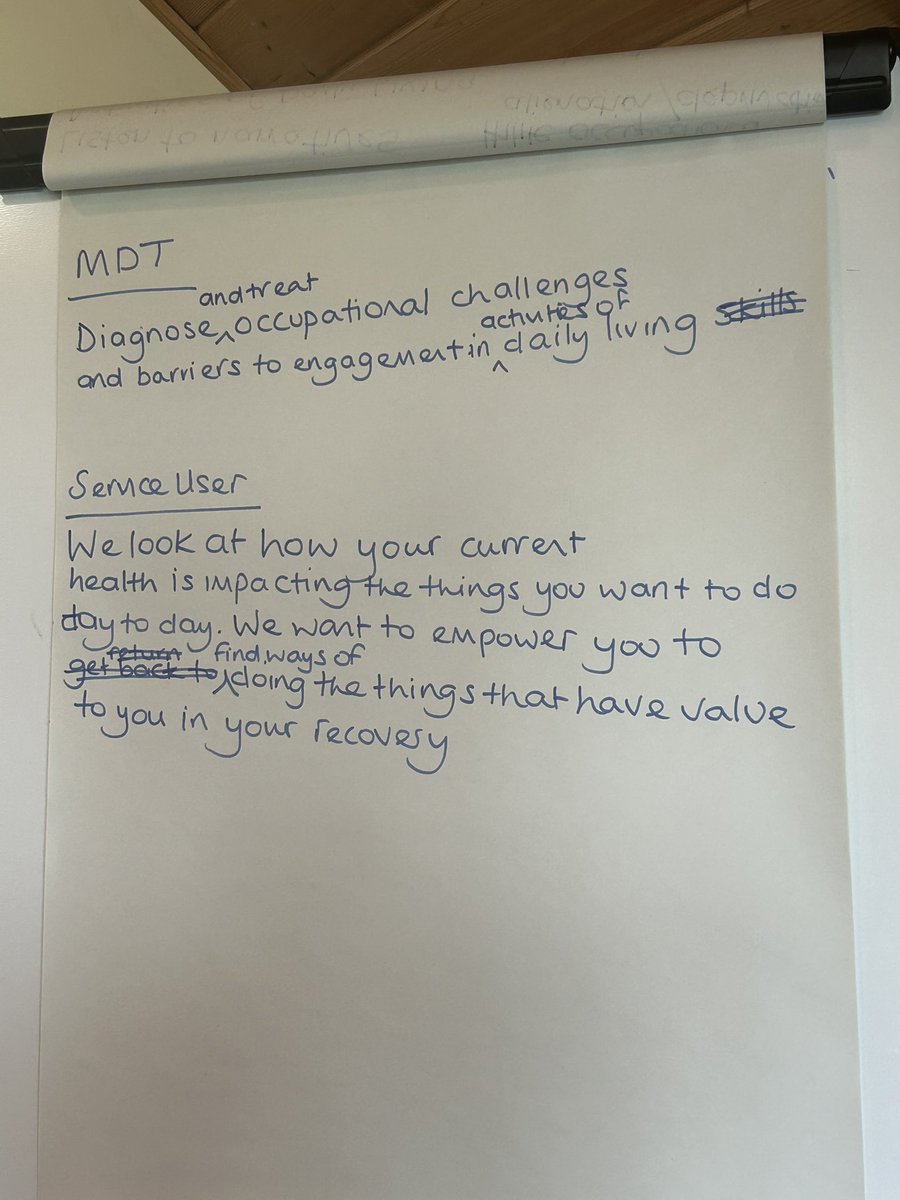 Listen to narratives
think occupational
alienation/deprivation
MDT
and treat
Diagnose ^ occupational challenges
activities of
and barriers to engagement in ^ daily living skills
Service User
We look at how your current
health is impacting the things you want to do
day to day. We want to empower you to
return find ways of
get back to ^ doing the things that have value
to you in your recovery